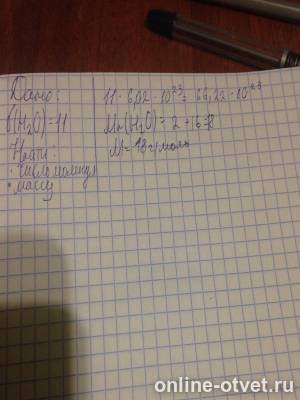 Дано:
ν(H₂O) = 11
Найти:
• число молекул
• массу
11 · 6,02 · 10²³ = 66,22 · 10²³
Mr(H₂O) = 2 + 16 = 18
M = 18 г/моль
online-otvet.ru